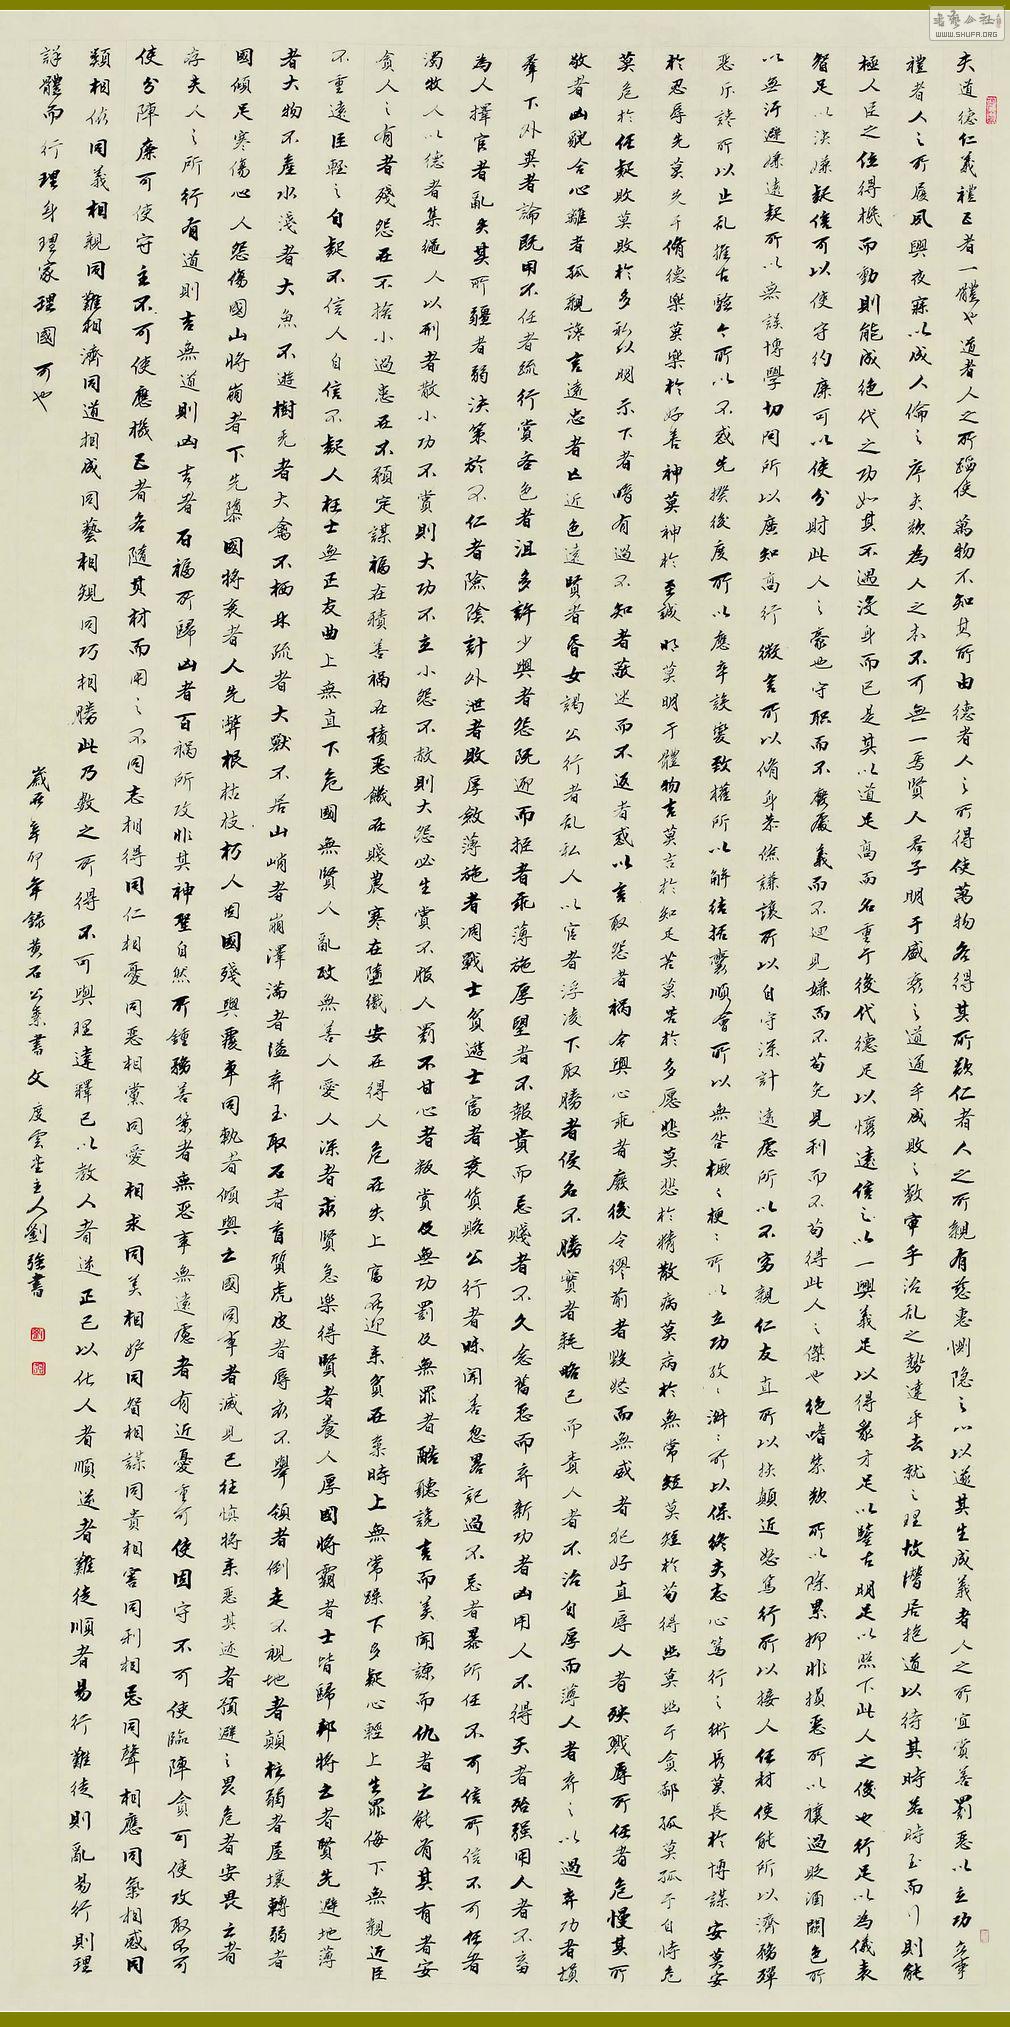 夫道德仁義禮五者一體也道者人之所蹈使萬物不知其所由德者人之所得使萬物各得其所欲仁者人之所親有慈惠惻隐之心以遂其生成義者人之所宜賞善罰惡以立功立事
禮者人之所履夙興夜寐以成人倫之序夫欲為人之本不可無一焉賢人君子明于盛衰之道通乎成敗之數審乎治乱之勢達乎去就之理故潛居抱道以待其時若時至而行則能
極人臣之位得機而動則能成绝代之功如其不遇沒身而已是其以道足高而名重于後代德足以懷遠信足以一異義足以得眾才足以鑒古明足以照下此人之俊也行足以為儀表
智足以決嫌疑信可以使守約廉可以使分財此人之豪也守职而不廢處義而不迴見嫌而不苟免見利而不苟得此人之傑也绝嗜禁欲所以除累抑非損惡所以禳過貶酒闕色所
以無汙避嫌遠疑所以無誤博學切問所以廣知高行微言所以脩身恭儉謙讓所以自守深計遠慮所以不窮親仁友直所以扶顛近恕篤行所以接人任材使能所以濟務殫
惡斥讒所以止乱推古驗今所以不惑先揆後度所以應卒設變致權所以解结括囊順會所以無咎橛橛梗梗所以立功孜孜淑淑所以保终夫志心篤行之術長莫長於博謀安莫安
於忍辱先莫先于脩德樂莫樂於好善神莫神於至誠明莫明于體物吉莫吉於知足苦莫苦於多愿悲莫悲於精散病莫病於無常短莫短於苟得幽莫幽于貪鄙孤莫孤于自恃危
莫危於任疑敗莫敗於多私以明示下者暗有過不知者蔽迷而不返者惑以言取怨者禍令與心乖者廢後令繆前者毀怒而無威者犯好直辱人者殃戮辱所任者危慢其所
敬者凶貌合心離者孤親讒言遠忠者亡近色遠賢者昏女謁公行者乱私人以官者浮凌下取勝者侵名不勝實者耗略己而責人者不治自厚而薄人者弃之以過弃功者損
羣下外異者淪既用不任者疏行賞吝色者沮多許少與者怨既迎而拒者乖薄施厚望者不報貴而忘賤者不久念舊惡而弃新功者凶用人不得天者殆强用人者不畜
為人擇官者亂失其所彊者弱決策於不仁者險陰計外泄者敗厚斂薄施者凋戰士貧遊士富者衰貨賂公行者昧聞善忽畧記過不忘者暴所任不可信所信不可任者
濁牧人以德者集繩人以刑者散小功不賞則大功不立小怨不赦則大怨必生賞不服人罰不甘心者叛賞及無功罰及無罪者酷聽讒言而美聞諫而仇者亡能有其有者安
貪人之有者殘怨在不捨小過患在不預定謀福在積善禍在積惡饑在賤農寒在墮織安在得人危在失上富在迎来貧在棄時上無常躁下多疑心輕上生罪侮下無親近臣
不重遠臣輕之自疑不信人自信不疑人枉士無正友曲上無直下危國無賢人亂政無善人愛人深者求賢急樂得賢者養人厚國將霸者士皆歸邦將亡者賢先避地薄
者大物不產水淺者大魚不遊樹禿者大禽不栖林疏者大獸不居山峭者崩澤滿者溢弃玉取石者盲質虎皮者辱衣不舉領者倒走不視地者顛柱弱者屋壞輔弱者
國傾足寒傷心人怨傷國山將崩者下先隳國將衰者人先弊根枯枝朽人困國殘與覆車同軌者傾與亡國同事者滅見已往慎將来惡其迹者預避之畏危者安畏亡者
存夫人之所行有道則吉無道則凶吉者百福所歸凶者百禍所攻非其神聖自然所鍾務善策者無惡事無遠慮者有近憂重可使固守不可使臨陣貪可使攻取不可
使分陣廉可使守主不可使應機五者各隨其材而用之不同志相得同仁相憂同惡相黨同愛相求同美相妒同智相謀同貴相害同利相忌同聲相應同氣相感同
類相依同義相親同難相濟同道相成同藝相規同巧相勝此乃數之所得不可與理違釋己以教人者逆正己以化人者順逆者難從順者易行難從則亂易行則理
詳體而行理身理家理國可也
歲在辛卯年錄黄石公素書文度雲堂主人劉强書
書藝公社
WWW.SHUFA.ORG